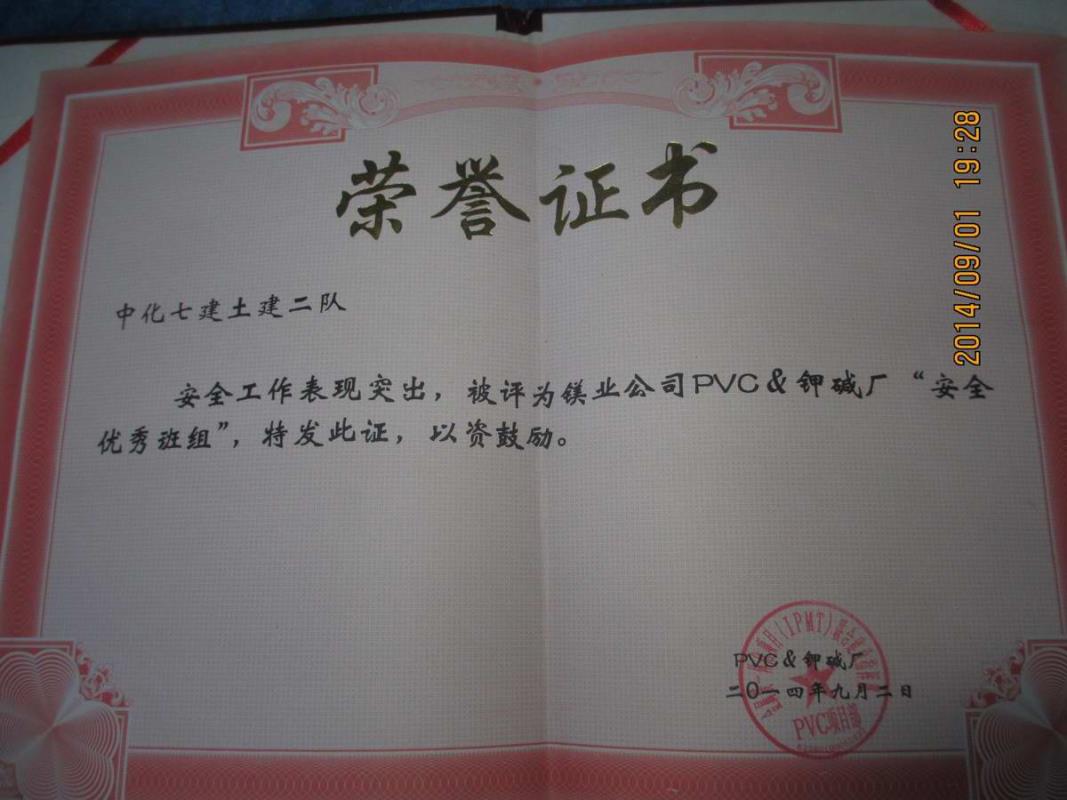 荣誉证书
2014/09/01 19:28
中化七建土建二队
安全工作表现突出，被评为镁业公司PVC＆钾碱厂“安全
优秀班组”，特发此证，以资鼓励。
PVC＆钾碱厂
二〇一四年九月二日
(IPMT)
PVC项目部